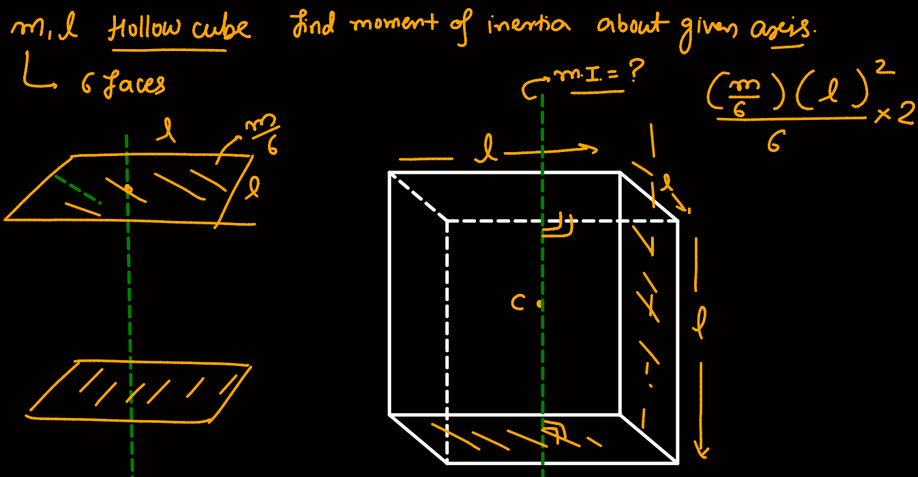 m, l Hollow cube find moment of inertia about given axis.
6 faces
m.I. = ?
(m/6)(l)²/6 × 2
l
m/6
l
l
l
c
l